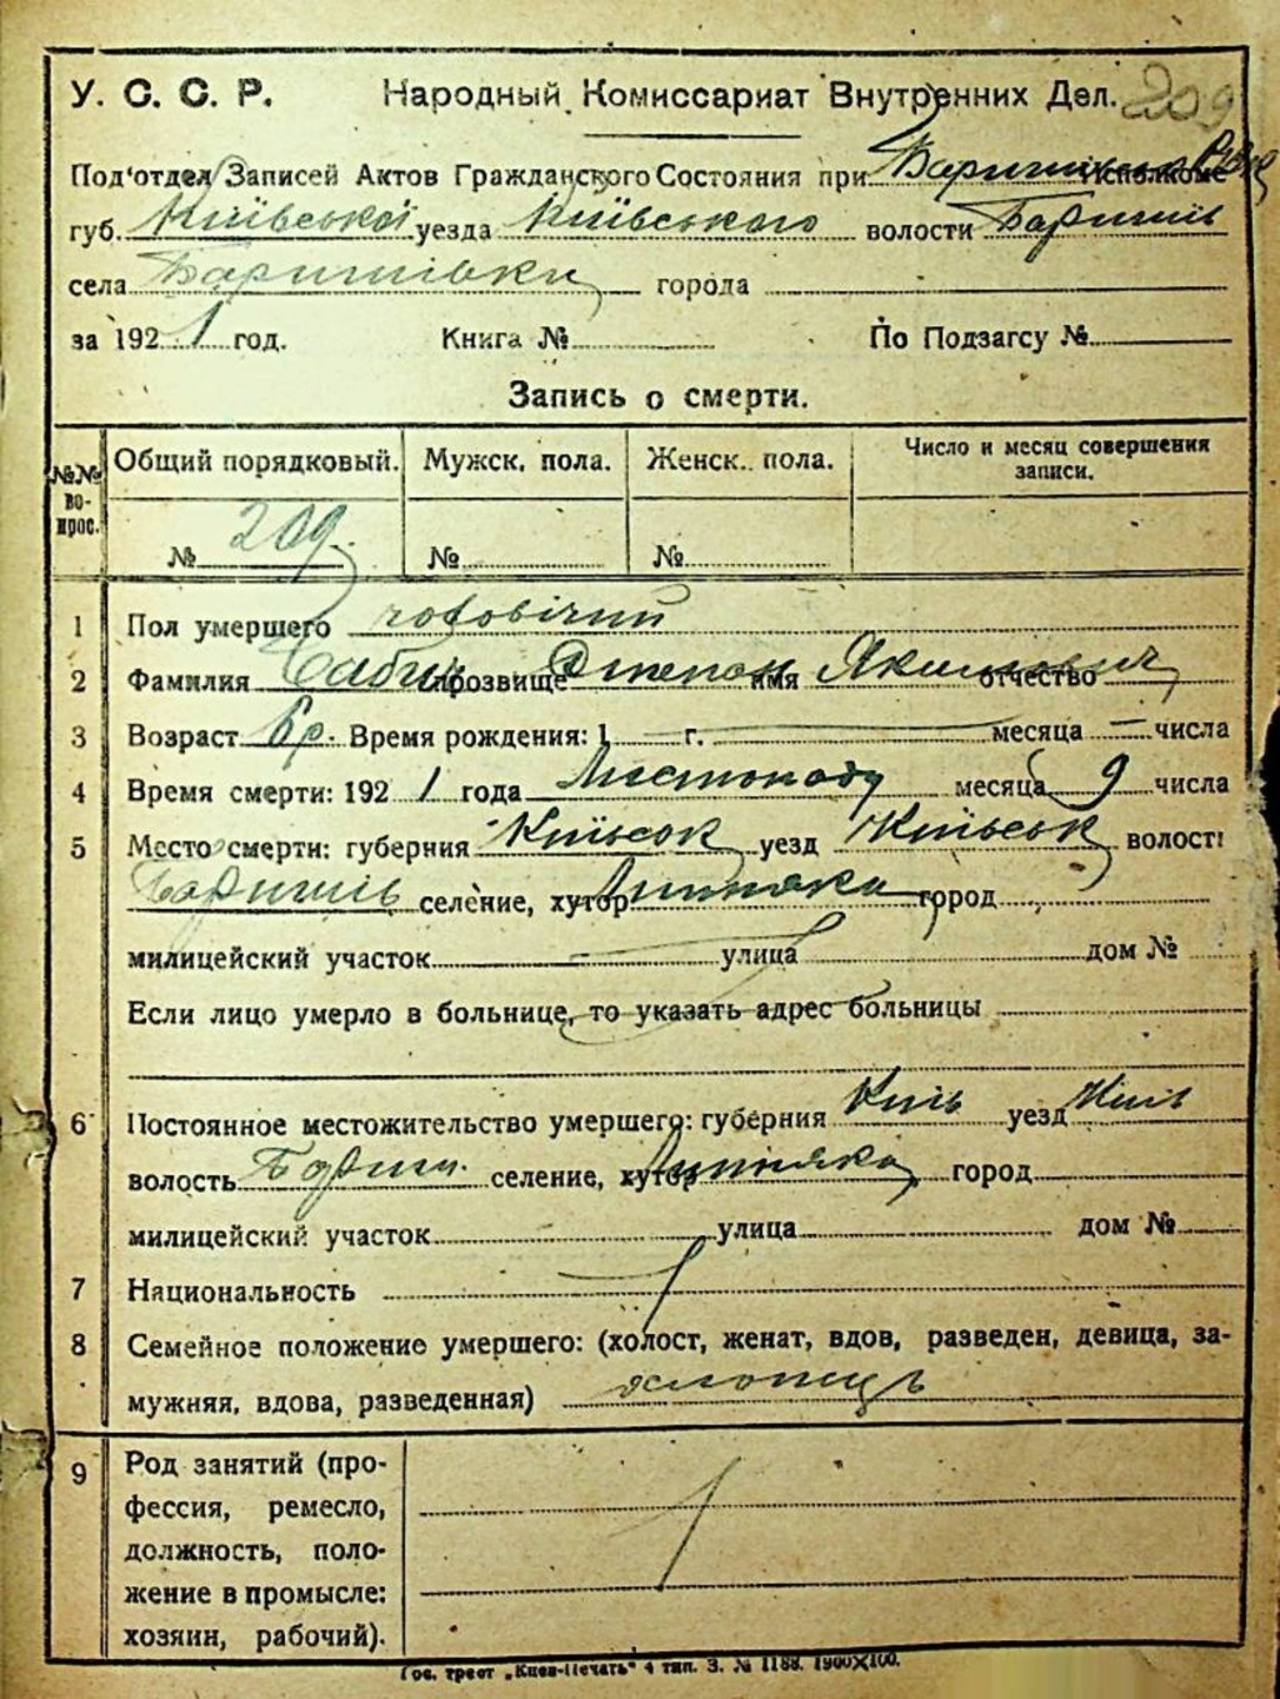 У. С. С. Р. Народный Комиссариат Внутренних Дел. 209
Под'отдел Записей Актов Гражданского Состояния при исполкоме
губ. Київської уезда Київського волости Баришів
села Баришівки города
за 1921 год. Книга № По Подзагсу №
Запись о смерти.
№№ вопрос. Общий порядковый. Мужск. пола. Женск. пола. Число и месяц совершения записи.
№ 209. № №
1 Пол умершего чоловічий
2 Фамилия прозвище Степан имя Якимович отчество
3 Возраст 6 р. Время рождения: 1 г. месяца числа
4 Время смерти: 1921 года Листопаду месяца 9 числа
5 Место смерти: губерния Київськ уезд Київськ волость
Баришів селение, хутор Липняки город
милицейский участок улица дом №
Если лицо умерло в больнице, то указать адрес больницы
6 Постоянное местожительство умершего: губерния Київ уезд Київ
волость Бариш. селение, хутор Липняки город
милицейский участок улица дом №
7 Национальность
8 Семейное положение умершего: (холост, женат, вдов, разведен, девица, за-
мужняя, вдова, разведенная) хлопець
9 Род занятий (про-
фессия, ремесло,
должность, поло-
жение в промысле:
хозяин, рабочий).
Гос. трест „Киев-Печать“ 4 тип. З. № 1188. 1900×100.